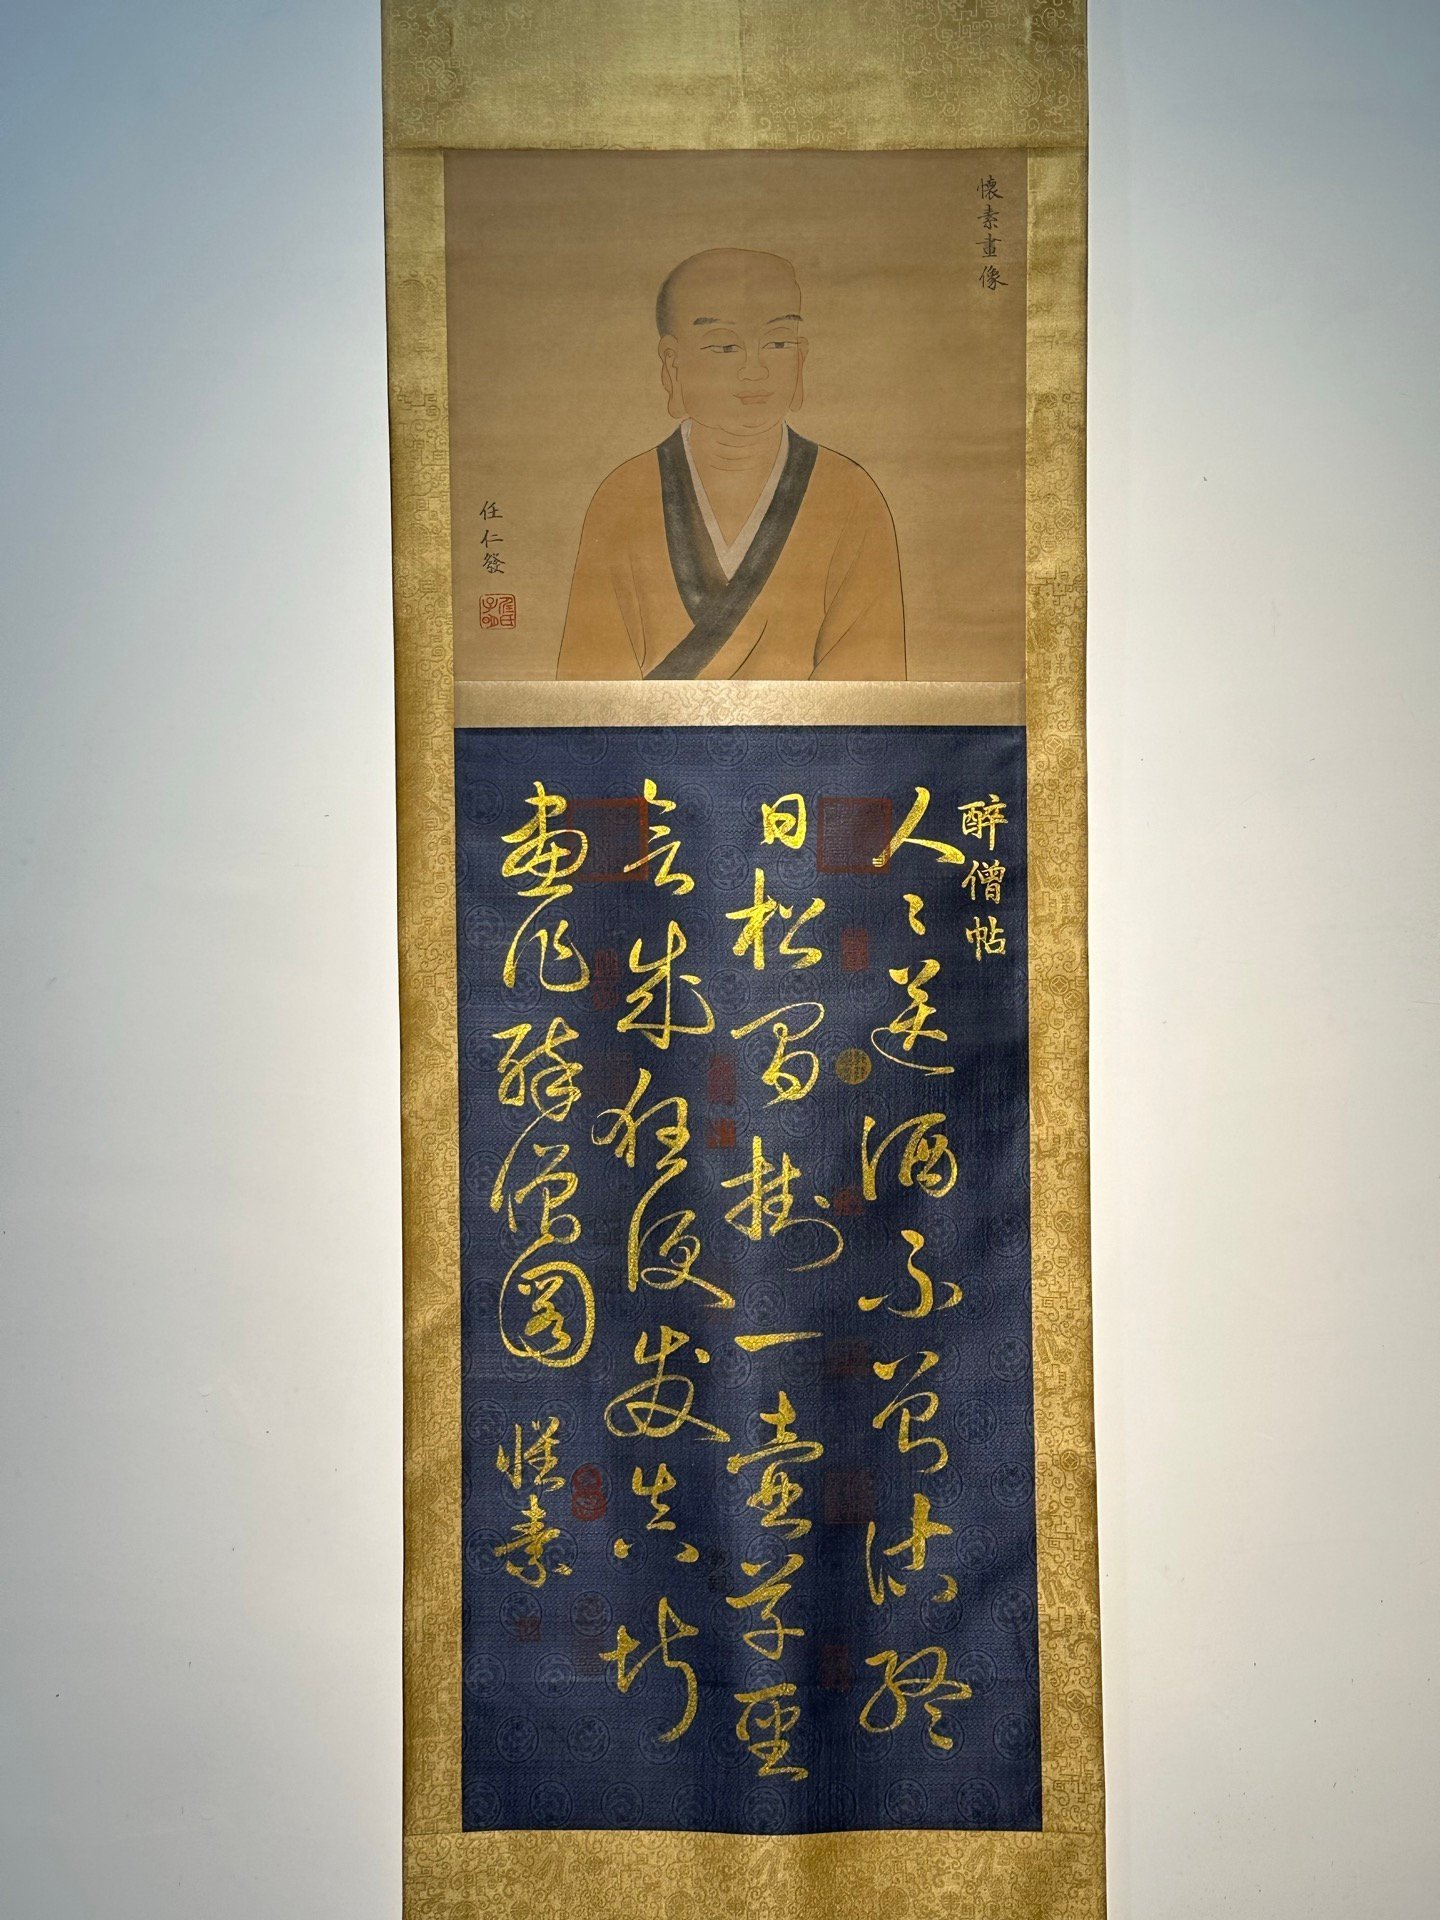 懷素畫像
任仁發
任氏子明
醉僧帖
人人送酒不曾沽終
日松間掛一壺草聖
欲成狂便發真堪
畫作醉僧圖
懷素